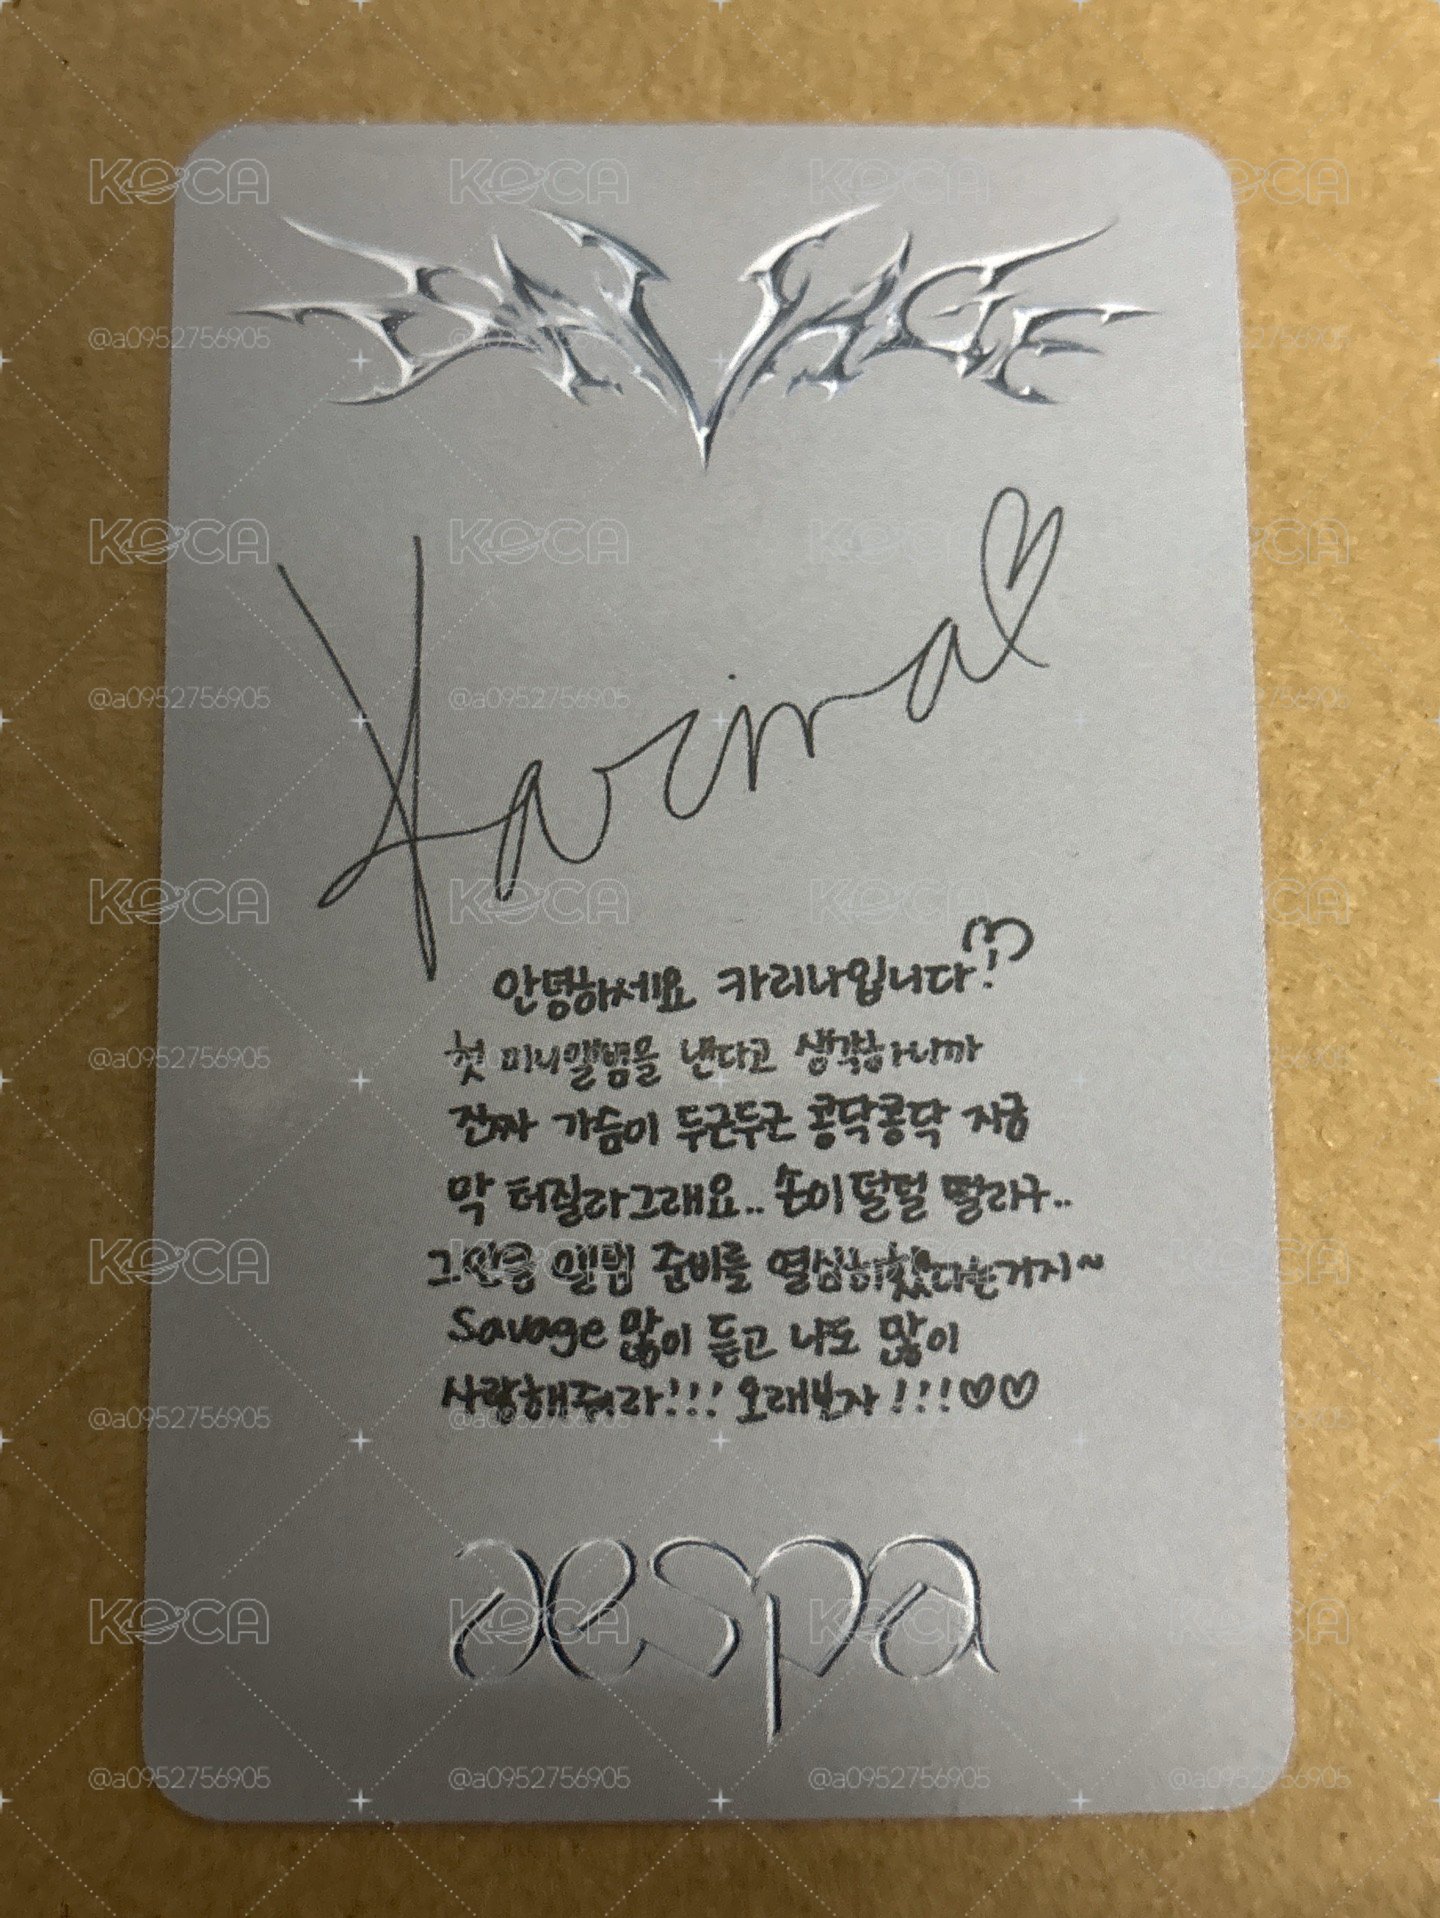 KOCA KOCA KOCA KOCA
SAVAGE
@a0952756905 @a0952756905
KOCA KOCA KOCA KOCA
Karina
@a0952756905 @a0952756905 @a0952756905
KOCA KOCA KOCA KOCA
안녕하세요 카리나입니다!
첫 미니앨범을 낸다고 생각하니까
@a0952756905 @a0952756905
진짜 가슴이 두근두근 콩닥콩닥 지금
막 터질라그래요.. 손이 덜덜 떨리구..
KOCA KOCA KOCA KOCA
그만큼 앨범 준비를 열심히했다는거지~
Savage 많이 듣고 나도 많이
사랑해줘라!!! 오래보자!!!♡♡
@a0952756905 @a0952756905 @a0952756905
aespa
KOCA KOCA KOCA KOCA
@a0952756905 @a0952756905 @a0952756905 @a0952756905